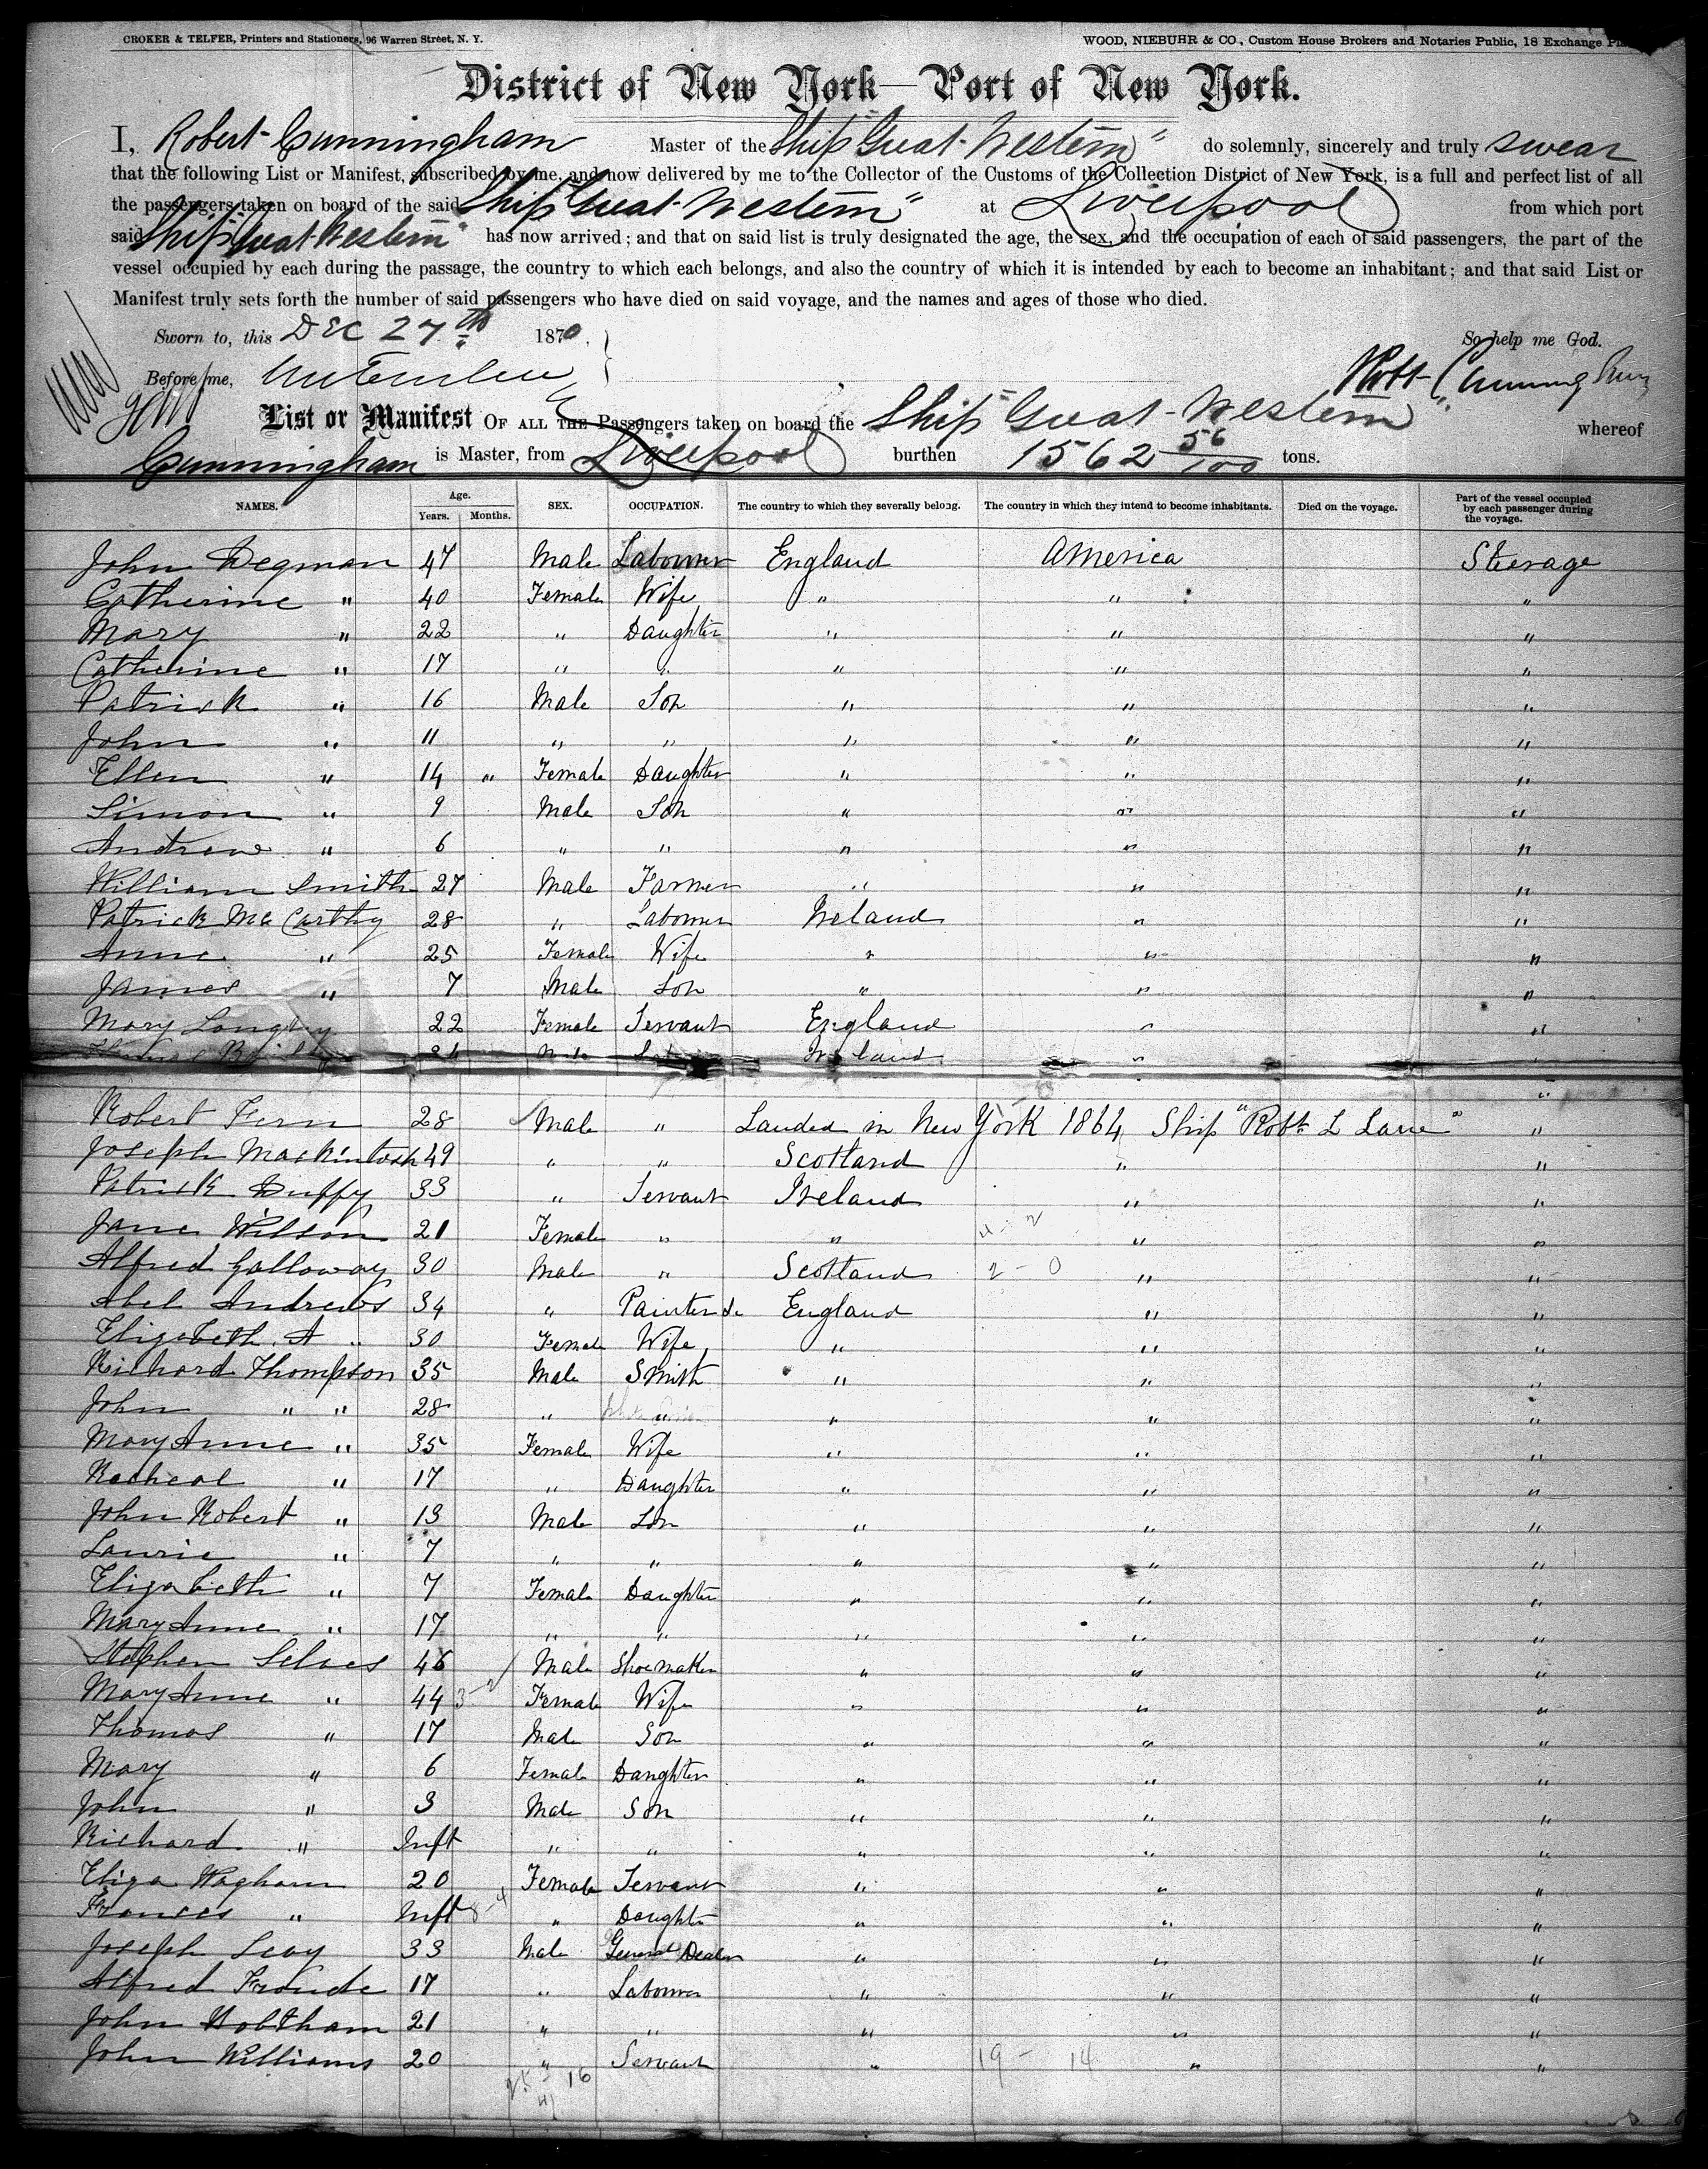 CROKER & TELFER, Printers and Stationers, 96 Warren Street, N. Y. WOOD, NIEBUHR & CO., Custom House Brokers and Notaries Public, 18 Exchange
District of New York—Port of New York.
I, Robert Cunningham Master of the Ship "Great Western" do solemnly, sincerely and truly swear
that the following List or Manifest, subscribed by me, and now delivered by me to the Collector of the Customs of the Collection District of New York, is a full and perfect list of all
the passengers taken on board of the said Ship "Great Western" at Liverpool from which port
said Ship "Great Western" has now arrived; and that on said list is truly designated the age, the sex, and the occupation of each of said passengers, the part of the
vessel occupied by each during the passage, the country to which each belongs, and also the country of which it is intended by each to become an inhabitant; and that said List or
Manifest truly sets forth the number of said passengers who have died on said voyage, and the names and ages of those who died.
Sworn to, this DEC 27th 1870. So help me God.
Before me, Robt Cunningham
List or Manifest OF ALL THE Passengers taken on board the Ship "Great Western" whereof
Cunningham is Master, from Liverpool burthen 1562 56/100 tons.
NAMES. Age. Years. Months. SEX. OCCUPATION. The country to which they severally belong. The country in which they intend to become inhabitants. Died on the voyage. Part of the vessel occupied by each passenger during the voyage.
John Degman 47 Male Labourer England America Steerage
Catherine " 40 Female Wife " " "
Mary " 22 " Daughter " " "
Catherine " 17 " " " " "
Patrick " 16 Male Son " " "
John " 11 " " " " "
Ellen " 14 " Female Daughter " " "
Simon " 9 Male Son " " "
Andrew " 6 " " " " "
William Smith 27 Male Farmer " " "
Patrick McCarthy 28 " Labourer Ireland " "
Anne " 25 Female Wife " " "
James " 7 Male Son " " "
Mary 22 Female Servant England " "
Ireland " "
Robert Fern 28 Male " Landed in New York 1864 Ship "Robt L Lane" "
Joseph Mackintosh 49 " " Scotland " "
Patrick Duffy 33 " Servant Ireland " "
Jane Wilson 21 Female " " " "
Alfred Galloway 30 Male " Scotland 2 - 0 " "
Abel Andrews 34 " Painter &c England " "
Elizabeth A " 30 Female Wife " " "
Richard Thompson 35 Male Smith " " "
John " " 28 " " " " "
Mary Anne " 35 Female Wife " " "
Racheal " 17 " Daughter " " "
John Robert " 13 Male Son " " "
Laurie " 7 " " " " "
Elizabeth " 7 Female Daughter " " "
Mary Anne " 17 " " " " "
Stephen 46 Male Shoemaker " " "
Mary Anne " 44 Female Wife " " "
Thomas " 17 Male Son " " "
Mary " 6 Female Daughter " " "
John " 3 Male Son " " "
Richard " Inft " " " " "
Eliza Wagham 20 Female Servant " " "
Frances " Inft " Daughter " " "
Joseph 33 Male General Dealer " " "
Alfred Froude 17 " Labourer " " "
John 21 " " " " "
John Williams 20 " Servant " 19 - 14 " "
16